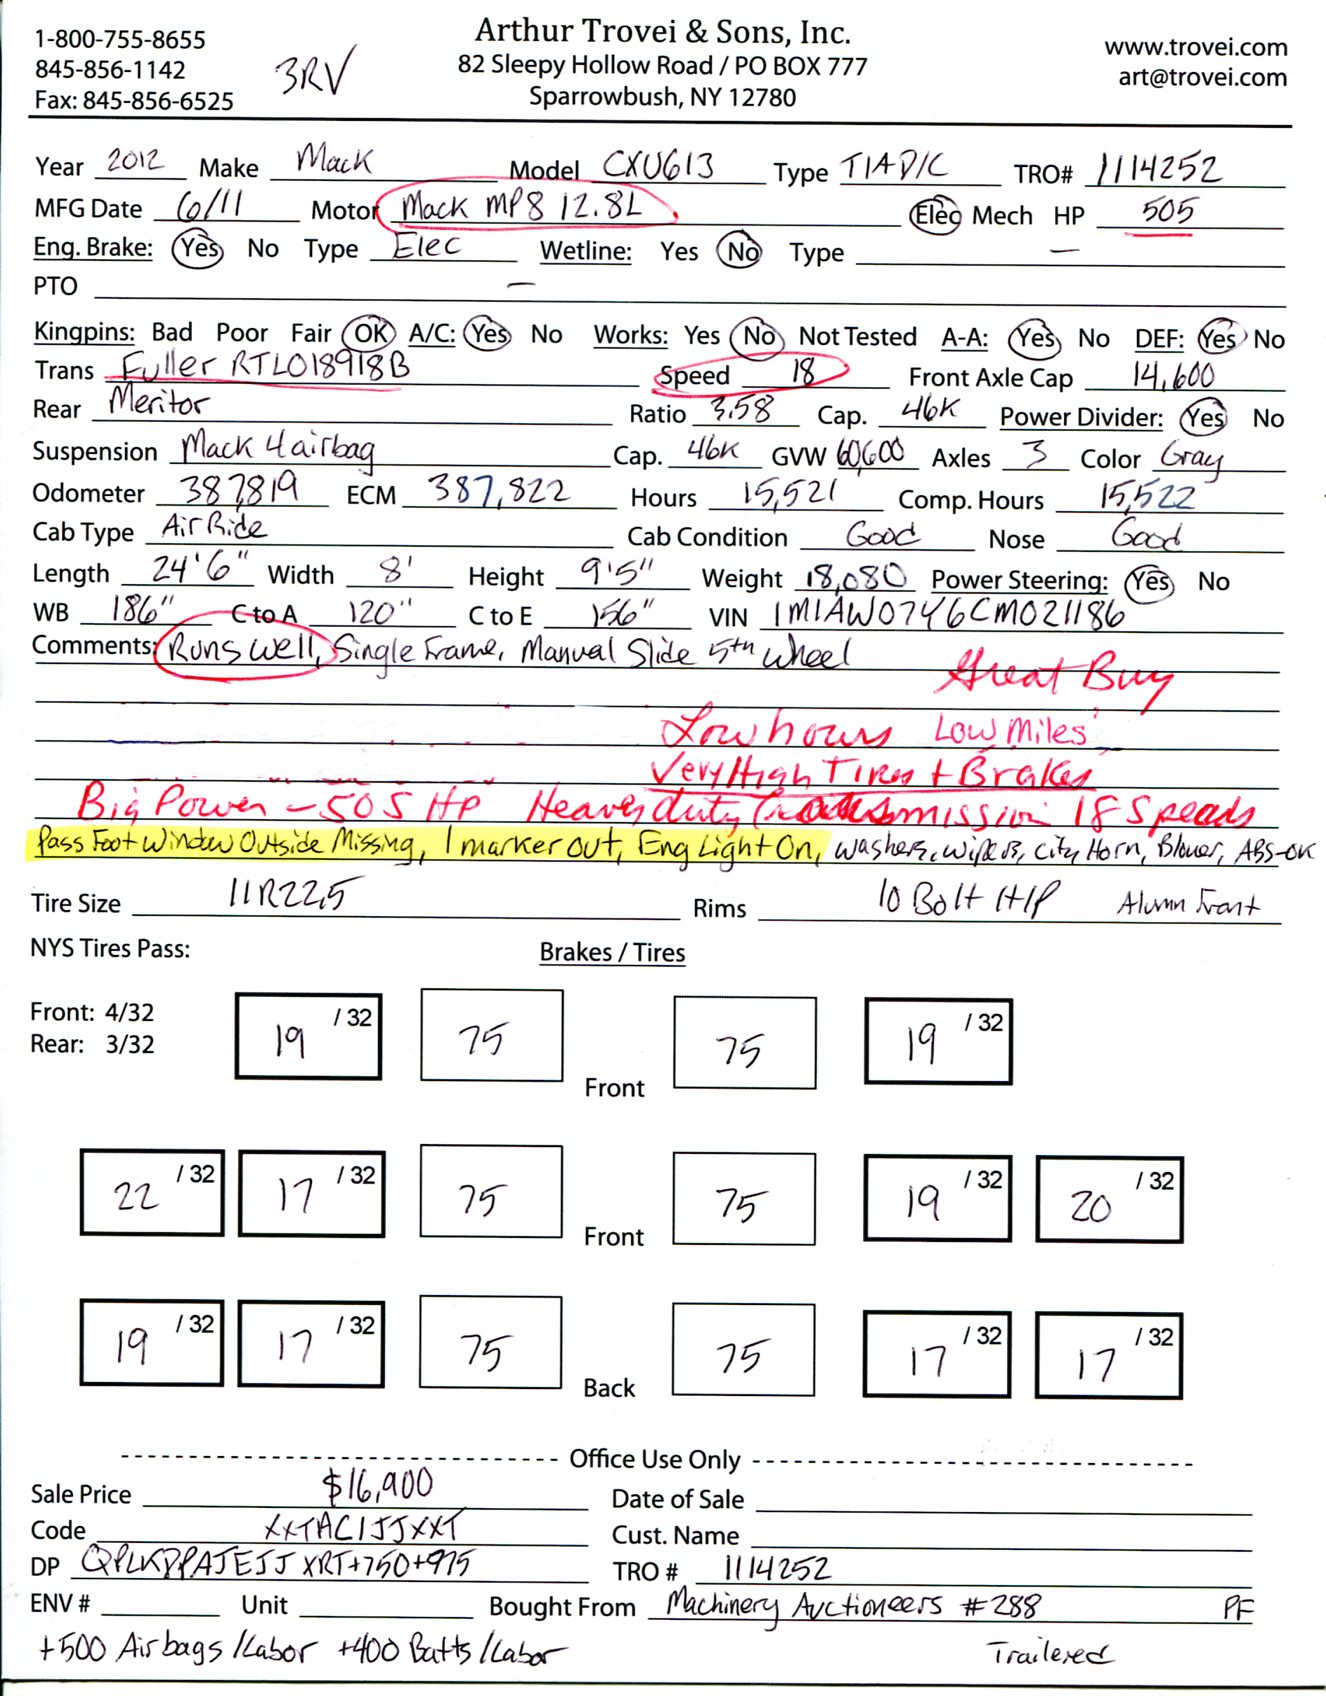 1-800-755-8655
845-856-1142
Fax: 845-856-6525
3RV
Arthur Trovei & Sons, Inc.
82 Sleepy Hollow Road / PO BOX 777
Sparrowbush, NY 12780
www.trovei.com
art@trovei.com
Year 2012 Make Mack Model CXU613 Type T/A D/C TRO# 1114252
MFG Date 6/11 Motor Mack MP8 12.8L Elec Mech HP 505
Eng. Brake: Yes No Type Elec Wetline: Yes No Type —
PTO —
Kingpins: Bad Poor Fair OK A/C: Yes No Works: Yes No Not Tested A-A: Yes No DEF: Yes No
Trans Fuller RTLO18918B Speed 18 Front Axle Cap 14,600
Rear Meritor Ratio 3.58 Cap. 46K Power Divider: Yes No
Suspension Mack 4 airbag Cap. 46K GVW 60,600 Axles 3 Color Gray
Odometer 387,819 ECM 387,822 Hours 15,521 Comp. Hours 15,522
Cab Type Air Ride Cab Condition Good Nose Good
Length 24'6" Width 8' Height 9'5" Weight 18,080 Power Steering: Yes No
WB 186" C to A 120" C to E 156" VIN 1M1AW07Y6CM021186
Comments: Runs well, Single Frame, Manual Slide 5th Wheel
Great Buy
Low hours Low Miles
Very High Tires + Brakes
Big Power - 505 HP Heavy duty Transmission 18 Speeds
Pass Foot Window Outside Missing, 1 marker out, Eng Light On, washers, wipers, city Horn, Blower, ABS-OK
Tire Size 11R22.5 Rims 10 Bolt H/P Alumn Front
NYS Tires Pass: Brakes / Tires
Front: 4/32
Rear: 3/32
19 /32 75 Front 75 19 /32
22 /32 17 /32 75 Front 75 19 /32 20 /32
19 /32 17 /32 75 Back 75 17 /32 17 /32
Office Use Only
Sale Price $16,900 Date of Sale
Code XXTACIJJXXT Cust. Name
DP QPLKPPAJEJJ XRT+750+975 TRO # 1114252
ENV # Unit Bought From Machinery Auctioneers #288 PF
+500 Airbags/Labor +400 Batts/Labor Trailered